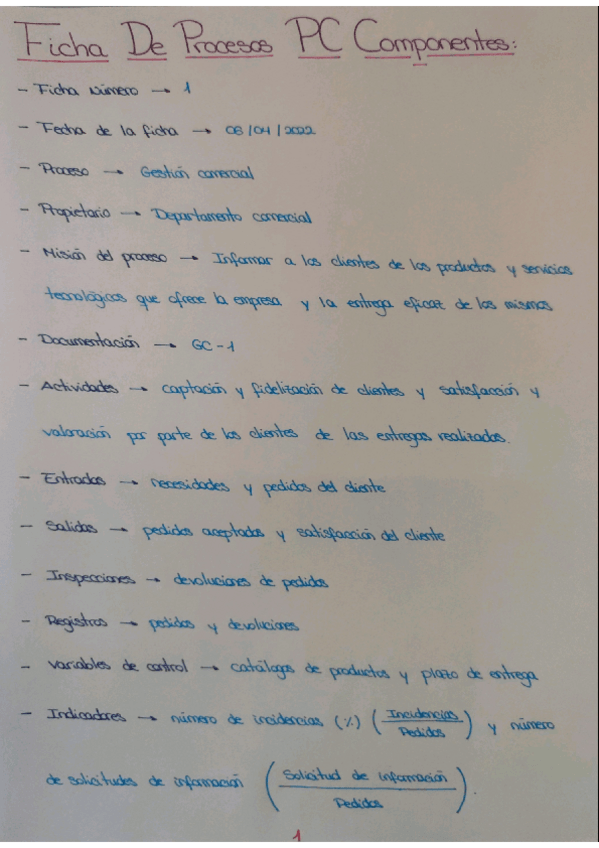 Ficha De Procesos PC Componentes:
- Ficha número → 1
- Fecha de la ficha → 08/04/2022
- Proceso → Gestión comercial
- Propietario → Departamento comercial
- Misión del proceso → Informar a los clientes de los productos y servicios
tecnológicos que ofrece la empresa y la entrega eficaz de los mismos
- Documentación → GC-1
- Actividades → captación y fidelización de clientes y satisfacción y
valoración por parte de los clientes de las entregas realizadas.
- Entradas → necesidades y pedidos del cliente
- Salidas → pedidos aceptados y satisfacción del cliente
- Inspecciones → devoluciones de pedidos
- Registros → pedidos y devoluciones
- Variables de control → catálogos de productos y plazo de entrega
- Indicadores → número de incidencias (%) (Incidencias / Pedidos) y número
de solicitudes de información (Solicitud de información / Pedidos).
1